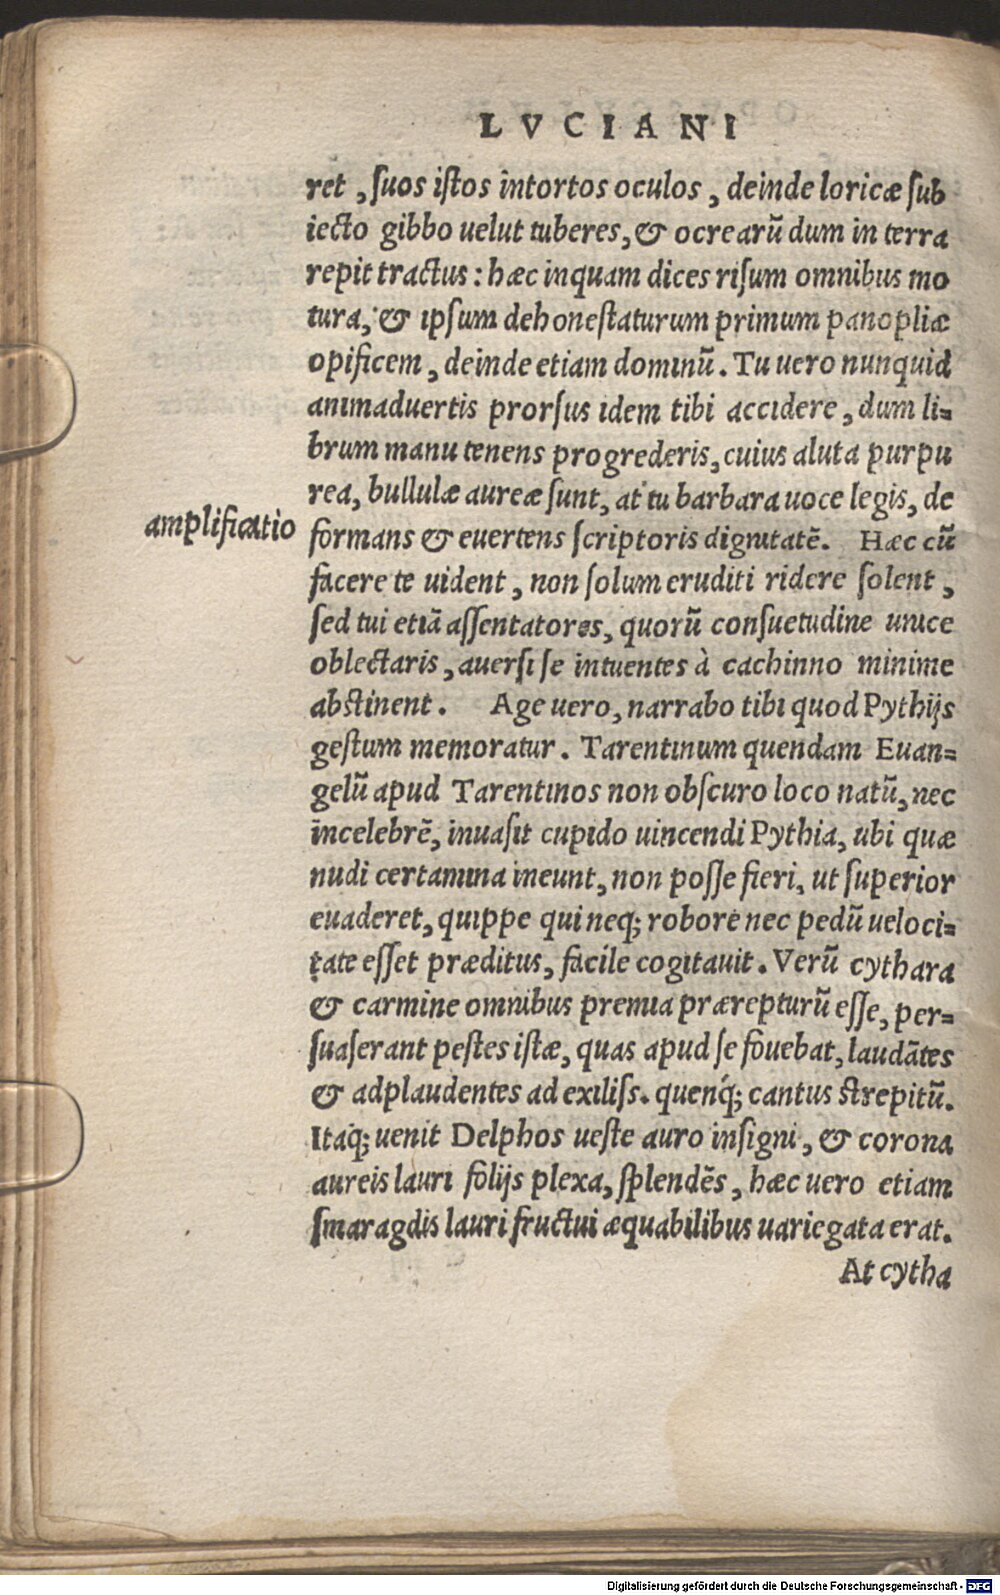 LVCIANI
ret, suos istos intortos oculos, deinde loricæ sub
iecto gibbo uelut tuberes, & ocrearū dum in terra
repit tractus: hæc inquam dices risum omnibus mo
tura, & ipsum dehonestaturum primum panopliæ
opificem, deinde etiam dominū. Tu uero nunquid
animaduertis prorsus idem tibi accidere, dum li=
brum manu tenens progrederis, cuius aluta purpu
rea, bullulæ aureæ sunt, at tu barbara uoce legis, de
amplificatio
formans & euertens scriptoris dignitatē. Hæc cū
facere te uident, non solum eruditi ridere solent,
sed tui etiā assentatores, quorū consuetudine unice
oblectaris, auersi se intuentes à cachinno minime
abstinent. Age uero, narrabo tibi quod Pythijs
gestum memoratur. Tarentinum quendam Euan=
gelū apud Tarentinos non obscuro loco natū, nec
incelebrē, inuasit cupido uincendi Pythia, ubi quæ
nudi certamina ineunt, non posse fieri, ut superior
euaderet, quippe qui neq; robore nec pedū ueloci=
tate esset præditus, facile cogitauit. Verū cythara
& carmine omnibus premia prærepturū esse, per=
suaserant pestes istæ, quas apud se fouebat, laudātes
& adplaudentes ad exiliss. quenq́; cantus strepitū.
Itaq; uenit Delphos ueste auro insigni, & corona
aureis lauri folijs plexa, splendēs, hæc uero etiam
smaragdis lauri fructui æquabilibus uariegata erat.
At cytha
Digitalisierung gefördert durch die Deutsche Forschungsgemeinschaft - DFG